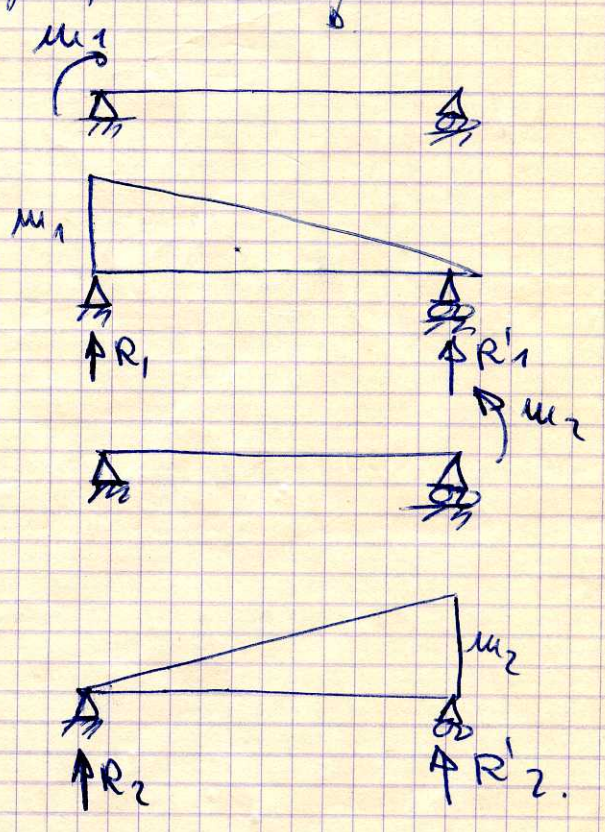 m1
m1
R1
R'1
m2
m2
R2
R'2.